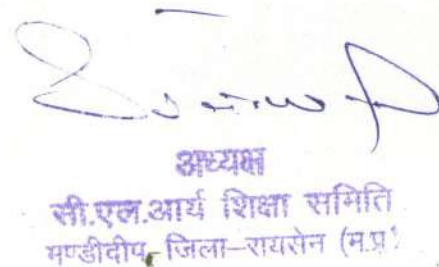 अध्यक्ष
सी.एल.आर्य शिक्षा समिति
मण्डीदीप, जिला–रायसेन (म.प्र.)